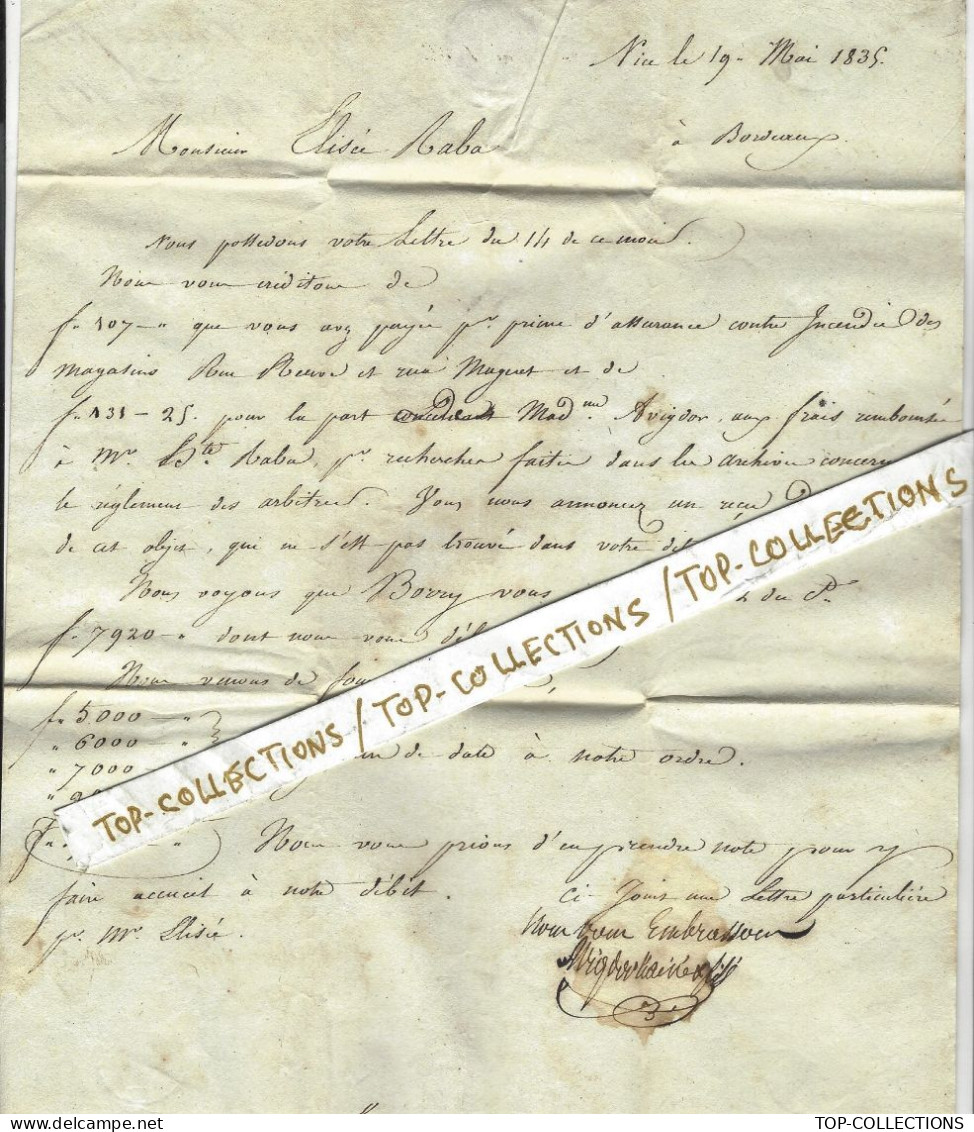 Nice le 19 - Mai 1835.
Monsieur Elisée Raba à Bordeaux
Nous possedons votre Lettre du 14 de ce mois.
Nous vous créditons de
f. 107 - " que vous avez payée pr. prime d'assurance contre Incendie des
magasins Rue et rue Maguet et de
f. 131 - 25. pour la part Madme Avigdor, aux frais remboursés
à Mr. Raba, pr. recherches faites dans les archives concern
le réglement des arbitres. Vous nous annoncez un reçu
de cet objet, qui ne s'est pas trouvé dans votre
Nous voyons que Borry vous du
f. 7920 - " dont nous vous
Nous venons de
f. 5000 - "
" 6000 - "
" 7000
de date à notre ordre.
Nous vous prions d'en prendre note pour y
faire accueil à notre débit. Ci Joint une Lettre particulière
pr. Mr. Elisée. Nous vous Embrassons
Avigdor L'aîné & fils
TOP-COLLECTIONS / TOP-COLLECTIONS / TOP-COLLECTIONS
TOP-COLLECTIONS